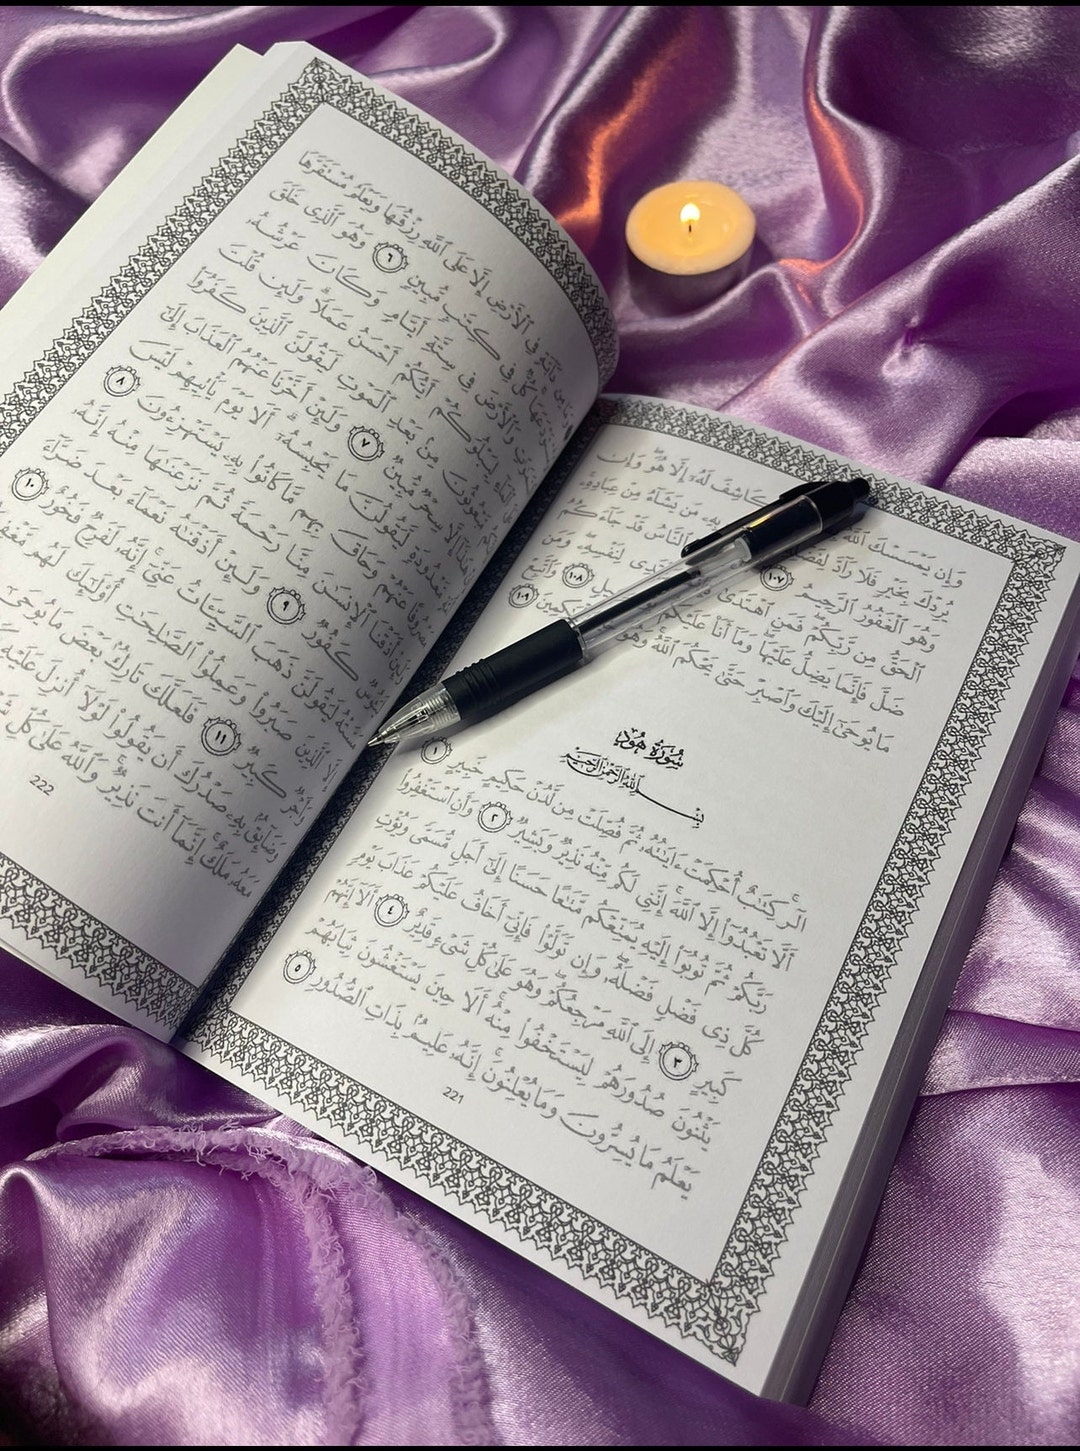 وَإِن يَمْسَسْكَ ٱللَّهُ كَاشِفَ لَهُۥٓ إِلَّا هُوَ ۖ وَإِن
يُرِدْكَ بِخَيْرٍ فَلَا رَآدَّ لِفَضْلِهِۦ بِهِۦ مَن يَشَآءُ مِنْ عِبَادِهِۦ ۚ
وَهُوَ ٱلْغَفُورُ ٱلرَّحِيمُ ١٠٧ ٱلنَّاسُ قَدْ جَآءَكُمُ
ٱلْحَقُّ مِن رَّبِّكُمْ ۖ فَمَنِ ٱهْتَدَىٰ يَهْتَدِى لِنَفْسِهِۦ ۖ وَمَن
ضَلَّ فَإِنَّمَا يَضِلُّ عَلَيْهَا ۖ وَمَآ أَنَا۠ عَلَيْكُم ١٠٨ وَٱتَّبِعْ
مَا يُوحَىٰٓ إِلَيْكَ وَٱصْبِرْ حَتَّىٰ يَحْكُمَ ٱللَّهُ ۚ وَهُوَ ١٠٩
سُورَةُ هُودٍ
بِسْمِ ٱللَّهِ ٱلرَّحْمَٰنِ ٱلرَّحِيمِ
الٓر ۚ كِتَٰبٌ أُحْكِمَتْ ءَايَٰتُهُۥ ثُمَّ فُصِّلَتْ مِن لَّدُنْ حَكِيمٍ خَبِيرٍ ١
أَلَّا تَعْبُدُوٓا۟ إِلَّا ٱللَّهَ ۚ إِنَّنِى لَكُم مِّنْهُ نَذِيرٌ وَبَشِيرٌ ٢ وَأَنِ ٱسْتَغْفِرُوا۟
رَبَّكُمْ ثُمَّ تُوبُوٓا۟ إِلَيْهِ يُمَتِّعْكُم مَّتَٰعًا حَسَنًا إِلَىٰٓ أَجَلٍ مُّسَمًّى وَيُؤْتِ
كُلَّ ذِى فَضْلٍ فَضْلَهُۥ ۖ وَإِن تَوَلَّوْا۟ فَإِنِّىٓ أَخَافُ عَلَيْكُمْ عَذَابَ يَوْمٍ
كَبِيرٍ ٣ إِلَى ٱللَّهِ مَرْجِعُكُمْ ۖ وَهُوَ عَلَىٰ كُلِّ شَىْءٍ قَدِيرٌ ٤ أَلَآ إِنَّهُمْ
يَثْنُونَ صُدُورَهُمْ لِيَسْتَخْفُوا۟ مِنْهُ ۚ أَلَا حِينَ يَسْتَغْشُونَ ثِيَابَهُمْ
يَعْلَمُ مَا يُسِرُّونَ وَمَا يُعْلِنُونَ ۚ إِنَّهُۥ عَلِيمٌۢ بِذَاتِ ٱلصُّدُورِ ٥
221
دَآبَّةٍ فِى ٱلْأَرْضِ إِلَّا عَلَى ٱللَّهِ رِزْقُهَا وَيَعْلَمُ مُسْتَقَرَّهَا
كُلٌّ فِى كِتَٰبٍ مُّبِينٍ ٦ وَهُوَ ٱلَّذِى خَلَقَ
وَٱلْأَرْضَ فِى سِتَّةِ أَيَّامٍ وَكَانَ عَرْشُهُۥ
لِيَبْلُوَكُمْ أَيُّكُمْ أَحْسَنُ عَمَلًا ۗ وَلَئِن قُلْتَ
مِنۢ بَعْدِ ٱلْمَوْتِ لَيَقُولَنَّ ٱلَّذِينَ كَفَرُوٓا۟
إِلَّا سِحْرٌ مُّبِينٌ ٧ وَلَئِنْ أَخَّرْنَا عَنْهُمُ ٱلْعَذَابَ إِلَىٰٓ
مَّعْدُودَةٍ لَّيَقُولُنَّ مَا يَحْبِسُهُۥٓ ۗ أَلَا يَوْمَ يَأْتِيهِمْ لَيْسَ
مَصْرُوفًا عَنْهُمْ وَحَاقَ بِهِم مَّا كَانُوا۟ بِهِۦ يَسْتَهْزِءُونَ ٨
أَذَقْنَا ٱلْإِنسَٰنَ مِنَّا رَحْمَةً ثُمَّ نَزَعْنَٰهَا مِنْهُ إِنَّهُۥ
كَفُورٌ ٩ وَلَئِنْ أَذَقْنَٰهُ نَعْمَآءَ بَعْدَ ضَرَّآءَ
لَيَقُولَنَّ ذَهَبَ ٱلسَّيِّـَٔاتُ عَنِّىٓ ۚ إِنَّهُۥ لَفَرِحٌ فَخُورٌ ١٠
إِلَّا ٱلَّذِينَ صَبَرُوا۟ وَعَمِلُوا۟ ٱلصَّٰلِحَٰتِ أُو۟لَٰٓئِكَ لَهُم
وَأَجْرٌ كَبِيرٌ ١١ فَلَعَلَّكَ تَارِكٌۢ بَعْضَ مَا يُوحَىٰٓ
وَضَآئِقٌۢ بِهِۦ صَدْرُكَ أَن يَقُولُوا۟ لَوْلَآ أُنزِلَ عَلَيْهِ
مَعَهُۥ مَلَكٌ ۚ إِنَّمَآ أَنتَ نَذِيرٌ ۚ وَٱللَّهُ عَلَىٰ كُلِّ
222